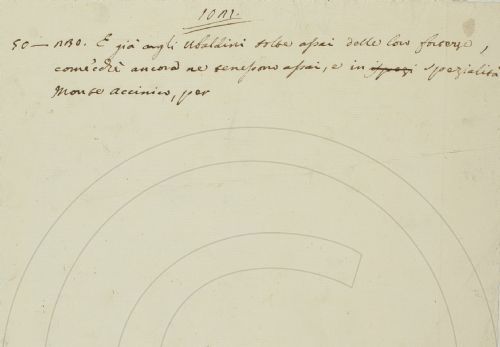 1081.
50 — ABO. E già agli Ubaldini tolte assai delle loro fortezze,
comecchè ancora ne tenessono assai, e in spezi spezialità
Monte Accinico, per